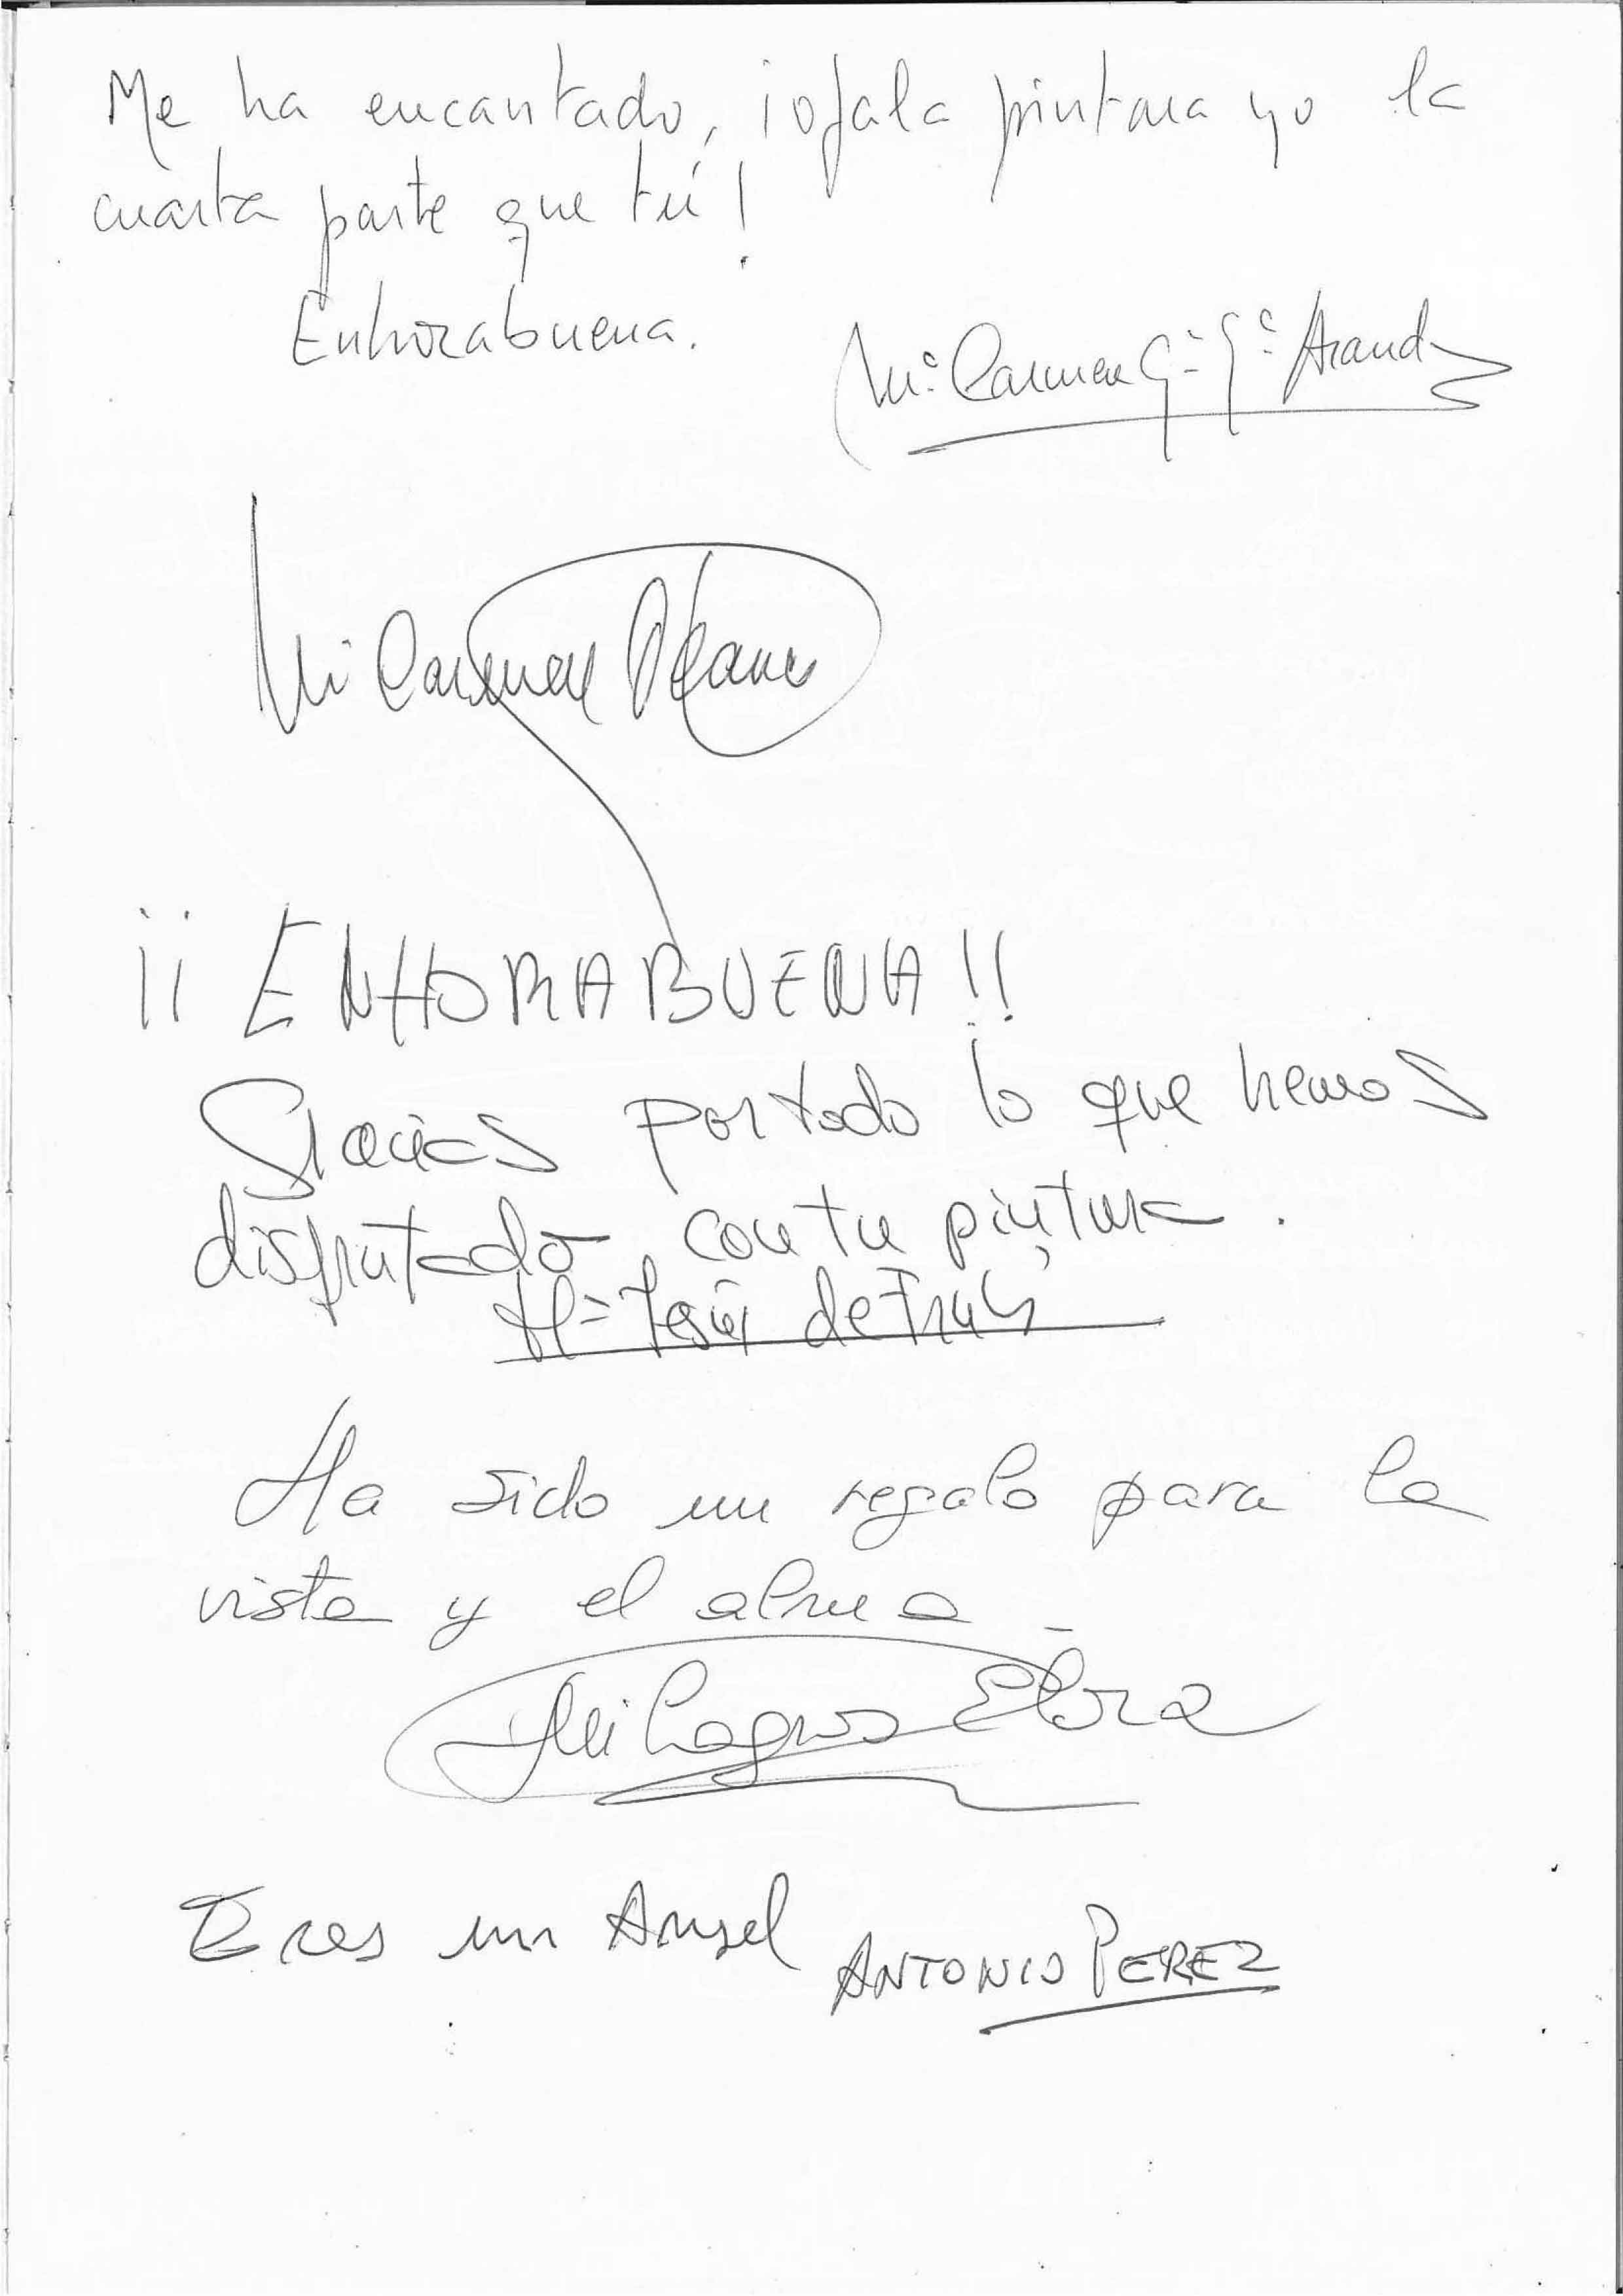 Me ha encantado, ¡ojala pintara yo la
cuarta parte que tú!
Enhorabuena.
Mª Carmen Gª Gª Arand
Mª Carmen
¡¡ ENHORABUENA!!
Gracias por todo lo que hemos
disfrutado con tu pintura.
Mª Jesús de
Ha sido un regalo para la
vista y el alma
Milagros Elora
Eres un Angel
ANTONIO PEREZ